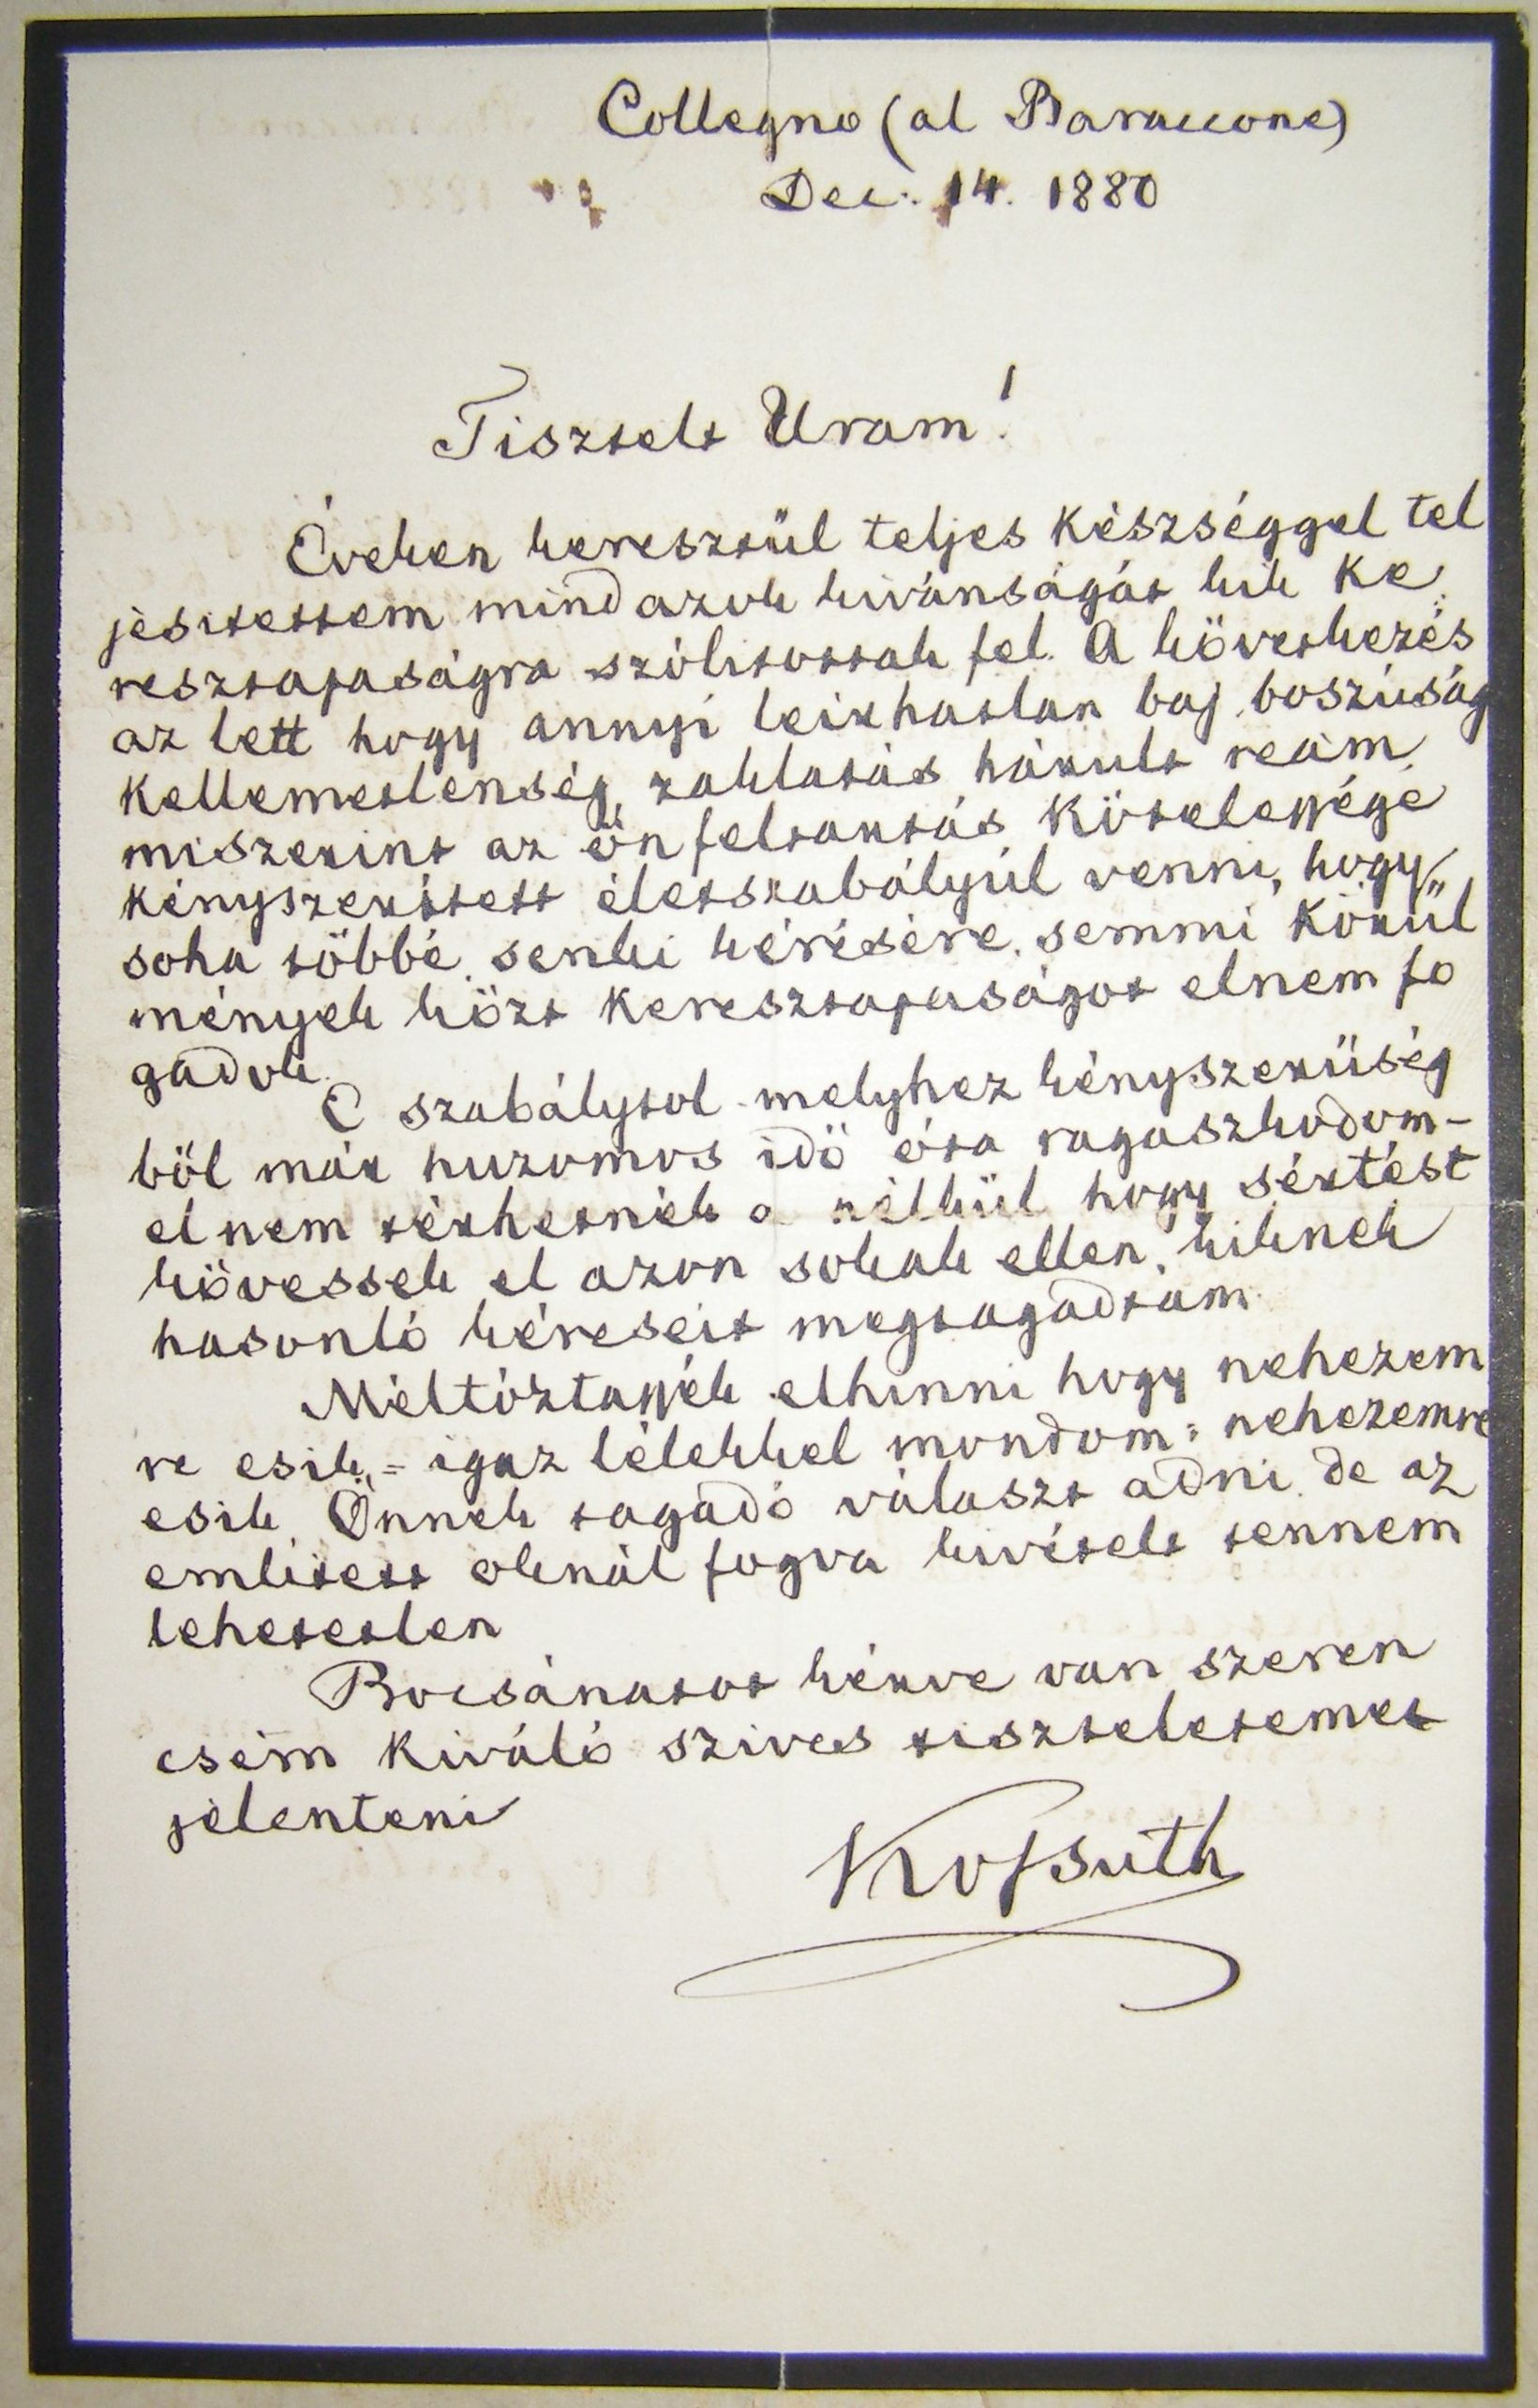 Collegno (al Baraccone)
Dec. 14. 1880
Tisztelt Uram!
Éveken keresztül teljes készséggel tel
jesitettem mindazok kivánságát kik ke
resztapaságra szólitottak fel. A következés
az lett hogy annyi leirhatlan baj, boszúság
kellemetlenség, zaklatás hárult reám,
miszerint az önfeltartás kötelessége
kényszeritett életszabályúl venni, hogy
soha többé, senki kérésére, semmi körül
mények közt keresztapaságot elnem fo
gadok.
E szabálytol melyhez kényszerüség
böl már huzomos idö óta ragaszkodom-
el nem térhetnék a nélkül hogy sértést
kövessek el azon sokak ellen, kiknek
hasonló kéreseit megtagadtam.
Méltóztassék elhinni hogy nehezem
re esik, - igaz lélekkel mondom: nehezemre
esik Önnek tagadó választ adni, de az
emlitett oknál fogva kivételt tennem
lehetetlen
Bocsánatot kérve van szeren
csém kiváló szives tiszteletemet
jelenteni
Kossuth